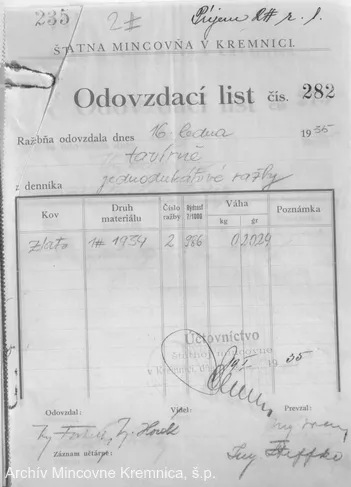 235
2
Príjem
ŠTÁTNA MINCOVŇA V KREMNICI.
Odovzdací list čís. 282
Ražbňa odovzdala dnes 16. ledna 1935
tavírně
z denníka jednodukátové ražby
Kov Druh materiálu Číslo ražby Rýdzosť ?/1000 Váha kg gr Poznámka
zlato 1# 1934 2 986 0 2029
Účtovníctvo
štátnej mincovne
v Kremnici, dňa 19 I. 1935
Odovzdal: Videl: Prevzal:
Ing Horák
Záznam učtárne: Ing
Archív Mincovne Kremnica, š.p.